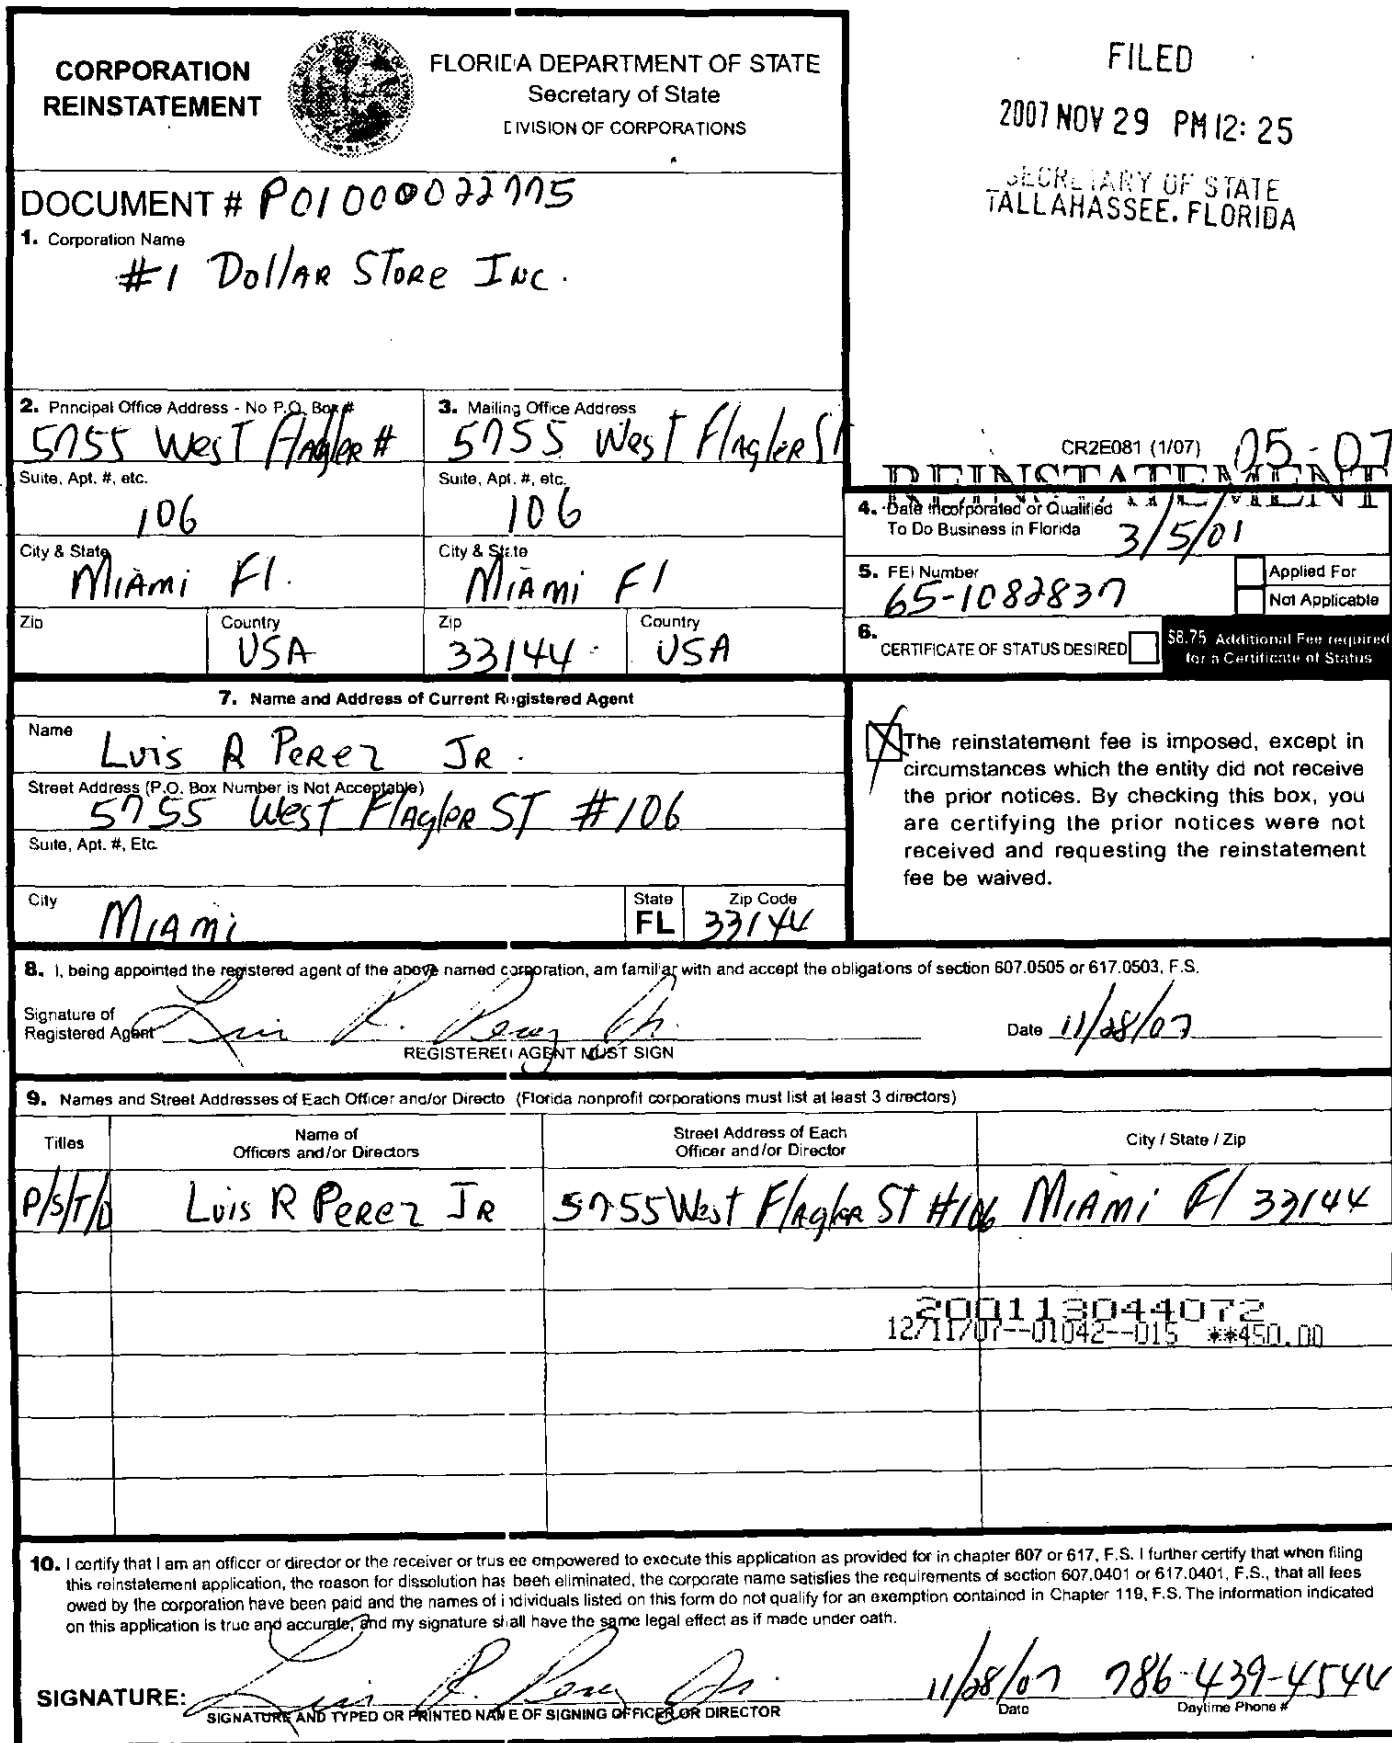 CORPORATION
REINSTATEMENT
FLORIDA DEPARTMENT OF STATE
Secretary of State
DIVISION OF CORPORATIONS
FILED
2007 NOV 29 PM 12: 25
SECRETARY OF STATE
TALLAHASSEE, FLORIDA
DOCUMENT # P01000022775
1. Corporation Name
#1 Dollar Store Inc.
2. Principal Office Address - No P.O. Box #
5755 West Flagler #
3. Mailing Office Address
5755 West Flagler St
Suite, Apt. #, etc.
106
Suite, Apt. #, etc.
106
City & State
Miami Fl.
City & State
Miami Fl
Zip
Country
USA
Zip
33144
Country
USA
CR2E081 (1/07) 05-07
REINSTATEMENT
4. Date Incorporated or Qualified
To Do Business in Florida 3/5/01
5. FEI Number
65-1082837
Applied For
Not Applicable
6. CERTIFICATE OF STATUS DESIRED
$8.75 Additional Fee required
for a Certificate of Status
7. Name and Address of Current Registered Agent
Name
Luis R Perez Jr.
Street Address (P.O. Box Number is Not Acceptable)
5755 West Flagler ST #106
Suite, Apt. #, Etc.
City
Miami
State
FL
Zip Code
33144
The reinstatement fee is imposed, except in
circumstances which the entity did not receive
the prior notices. By checking this box, you
are certifying the prior notices were not
received and requesting the reinstatement
fee be waived.
8. I, being appointed the registered agent of the above named corporation, am familiar with and accept the obligations of section 607.0505 or 617.0503, F.S.
Signature of
Registered Agent Luis R. Perez Jr.
REGISTERED AGENT MUST SIGN
Date 11/28/07
9. Names and Street Addresses of Each Officer and/or Directo (Florida nonprofit corporations must list at least 3 directors)
Titles
Name of
Officers and/or Directors
Street Address of Each
Officer and/or Director
City / State / Zip
P/S/T/D Luis R Perez Jr 5755 West Flagler ST #106 Miami Fl 33144
200113044072
12/11/07--01042--015 **450.00
10. I certify that I am an officer or director or the receiver or trustee empowered to execute this application as provided for in chapter 607 or 617, F.S. I further certify that when filing
this reinstatement application, the reason for dissolution has been eliminated, the corporate name satisfies the requirements of section 607.0401 or 617.0401, F.S., that all fees
owed by the corporation have been paid and the names of individuals listed on this form do not qualify for an exemption contained in Chapter 119, F.S. The information indicated
on this application is true and accurate, and my signature shall have the same legal effect as if made under oath.
SIGNATURE: Luis R. Perez Jr. 11/28/07 786-439-4544
SIGNATURE AND TYPED OR PRINTED NAME OF SIGNING OFFICER OR DIRECTOR
Date
Daytime Phone #